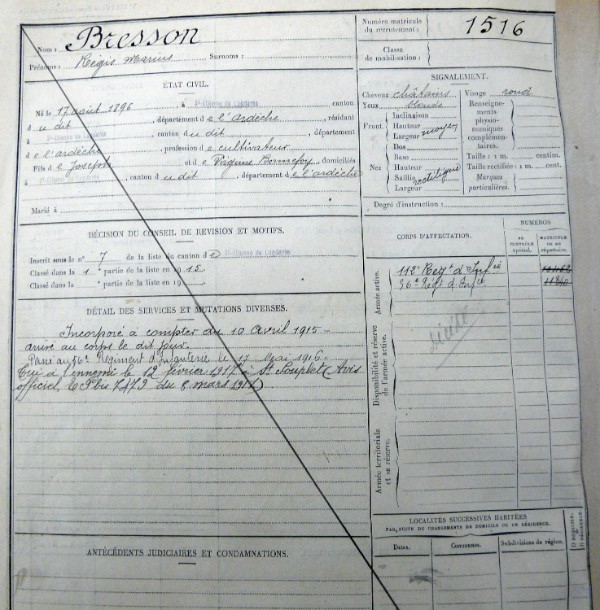 Nom : Bresson
Prénoms : Régis Marius Surnoms :
Numéro matricule du recrutement : 1516
Classe de mobilisation :
ÉTAT CIVIL.
Né le 17 août 1896, à St-Etienne de Lugdarès, canton
du dit, département de l'ardèche, résidant
à St-Etienne de Lugdarès, canton du dit, département
de l'ardèche, profession de cultivateur
Fils de Joseph et de Régine Bonnefoy, domiciliés
à St-Etienne de Lugdarès, canton du dit, département de l'ardèche
Marié à
SIGNALEMENT.
Cheveux châtains Visage rond
Yeux
Front Inclinaison Hauteur Largeur moyen
Nez Dos Base Hauteur Saillie Largeur rectiligne
Renseignements physionomiques complémentaires.
Taille : 1 m. centim.
Taille rectifiée : 1 m. cent.
Marques particulières.
Degré d'instruction :
DÉCISION DU CONSEIL DE RÉVISION ET MOTIFS.
Inscrit sous le n° 7 de la liste du canton de St-Etienne de Lugdarès
Classé dans la 1 partie de la liste en 1915
Classé dans la partie de la liste en 19
CORPS D'AFFECTATION.
NUMÉROS
AU CONTRÔLE SPÉCIAL.
MATRICULE OU AU RÉPERTOIRE.
Armée active.
112e Régt d'Infie
36e Régt d'Infie
décédé
Disponibilité et réserve de l'armée active.
Armée territoriale et sa réserve.
DÉTAIL DES SERVICES ET MUTATIONS DIVERSES.
Incorporé à compter du 10 avril 1915
arrivé au corps le dit jour.
Passé au 36e Régiment d'Infanterie le 17 Mai 1916.
Tué à l'ennemi le 12 février 1917 à St Souplet (Avis
officiel le du 8 mars 1917).
LOCALITÉS SUCCESSIVES HABITÉES
PAR SUITE DE CHANGEMENTS DE DOMICILE OU DE RÉSIDENCE.
Dates. Communes. Subdivisions de région.
D domicile. R résidence.
ANTÉCÉDENTS JUDICIAIRES ET CONDAMNATIONS.